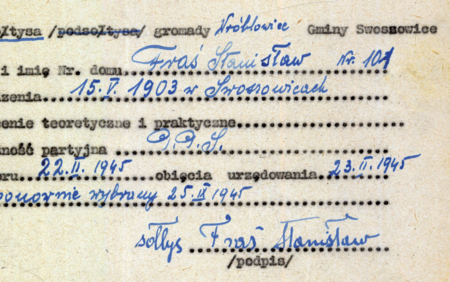 ołtysa /podsołtysa/ gromady Wróblowice Gminy Swoszowice
i imię Nr. domu Fraś Stanisław Nr. 101
zenia 15.V.1903 w Swoszowicach
enie teoretyczne i praktyczne
ność partyjna P.P.S.
oru 22.II.1945 objęcia urzędowania 23.II.1945
ponownie wybrany 25.IX 1945
sołtys Fraś Stanisław
/podpis/